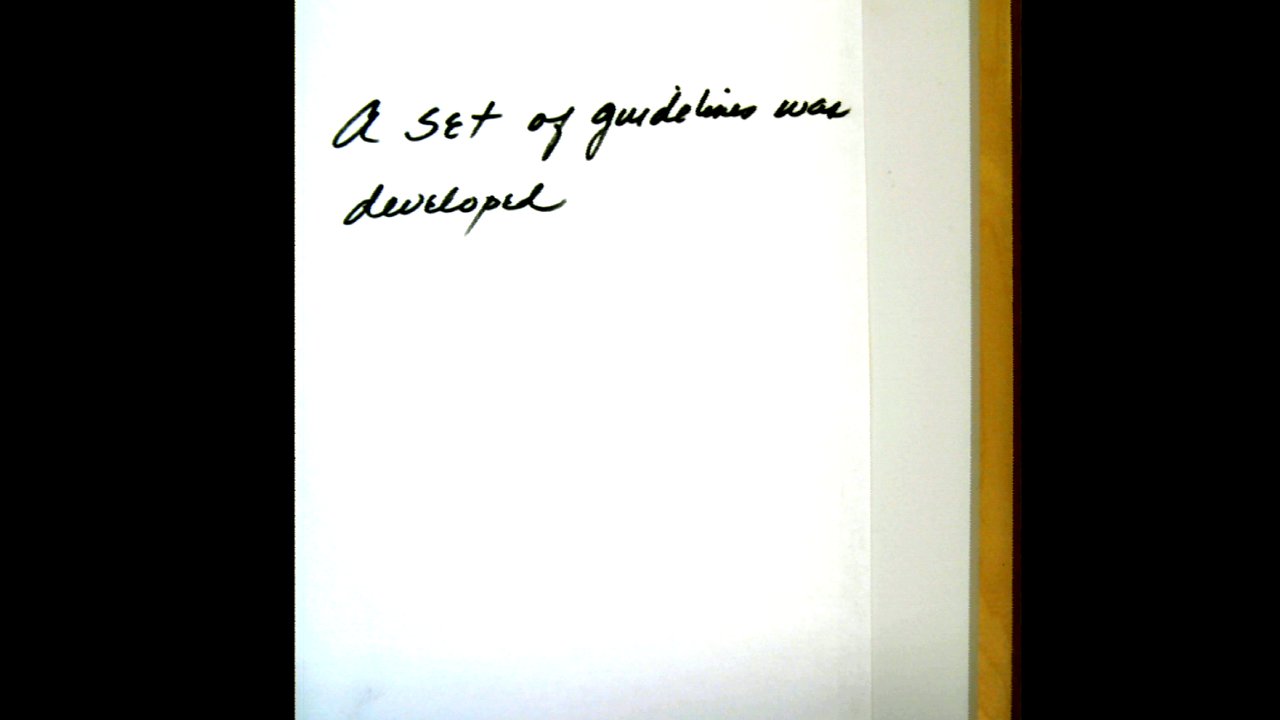 A set of guidelines was
developed